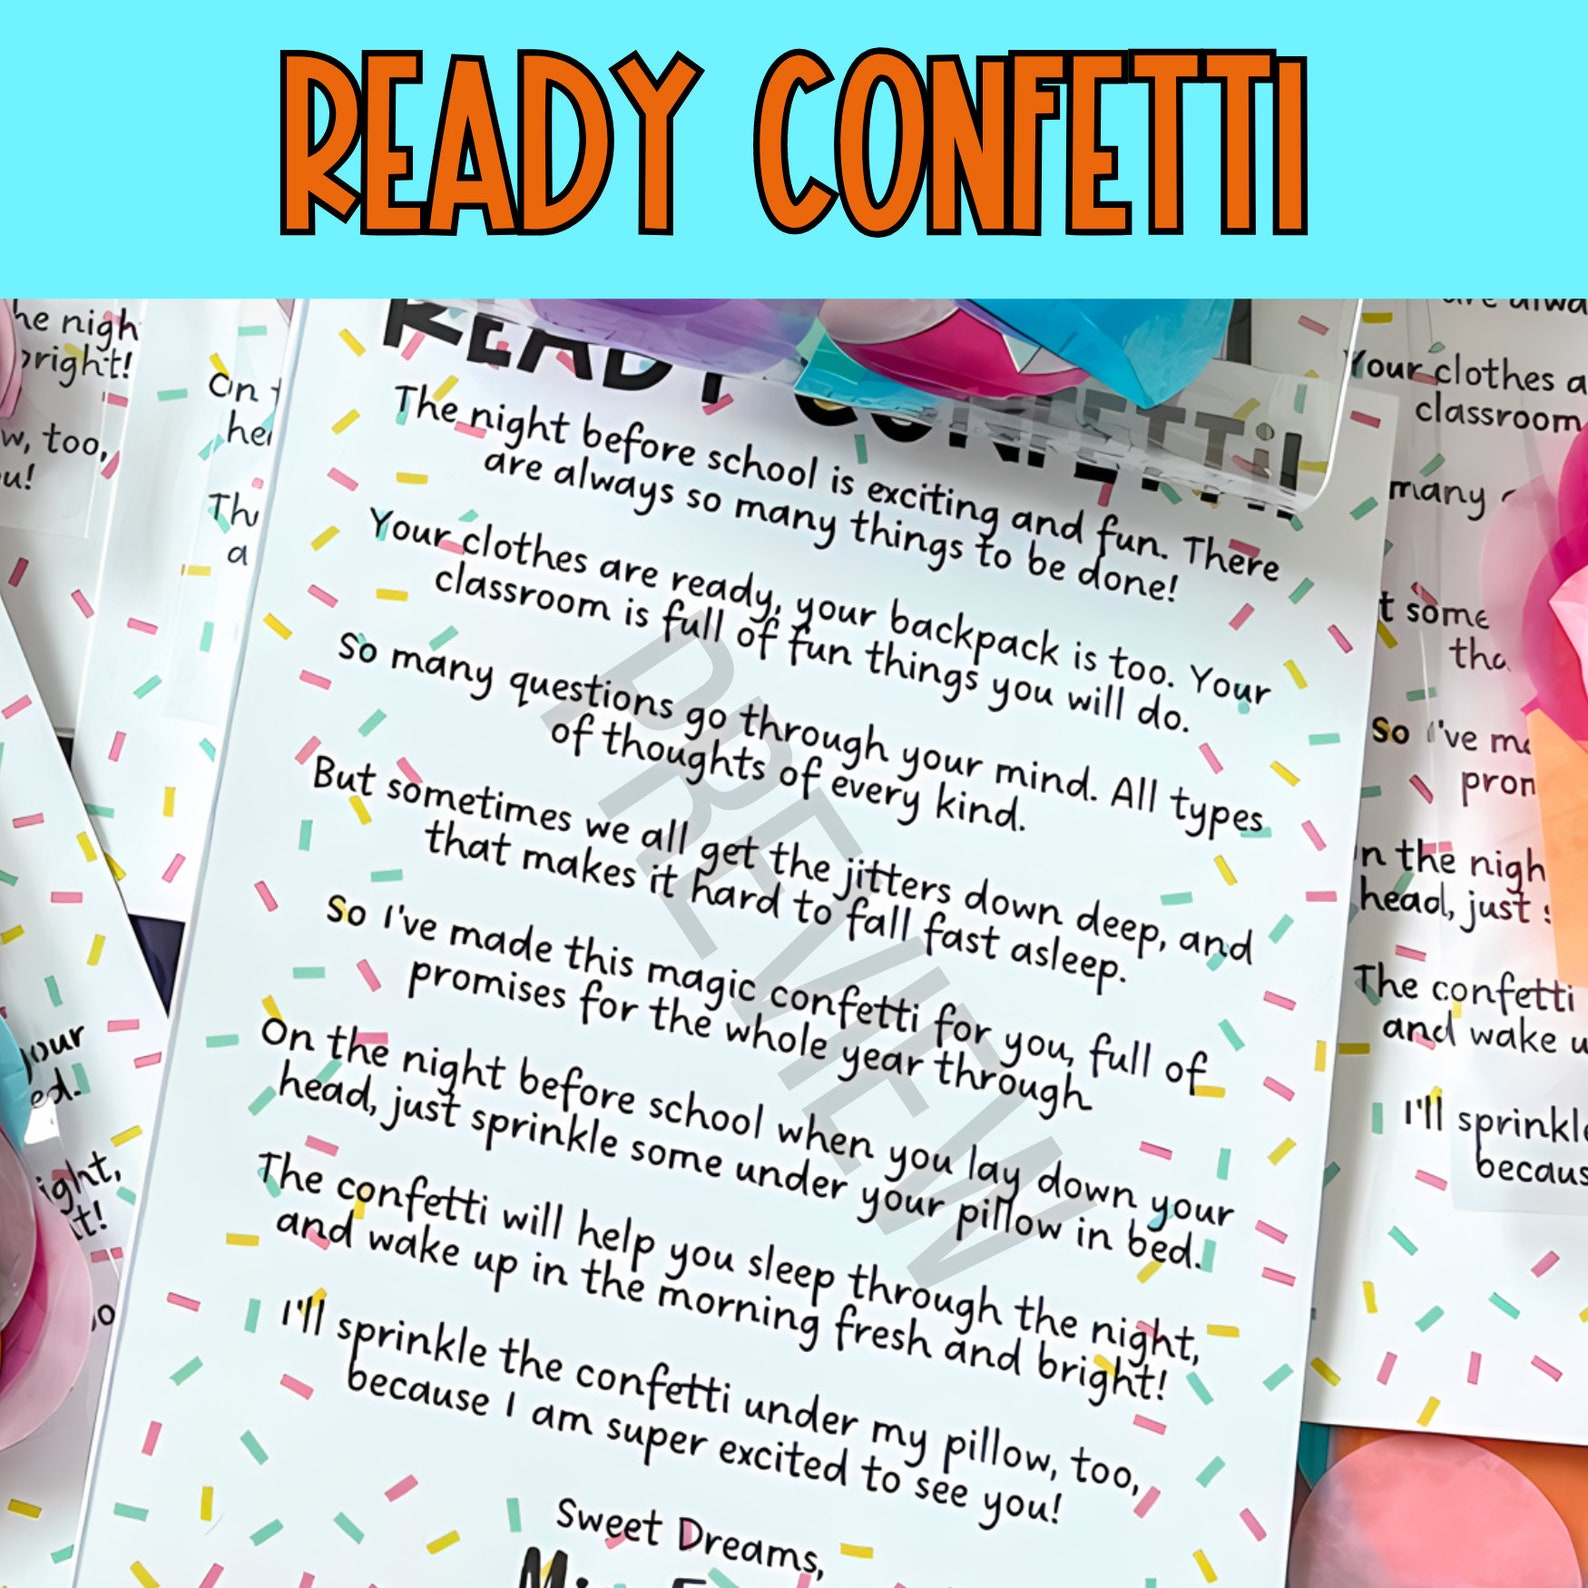 READY CONFETTI
READY CONFETTI!
The night before school is exciting and fun. There
are always so many things to be done!
Your clothes are ready, your backpack is too. Your
classroom is full of fun things you will do.
So many questions go through your mind. All types
of thoughts of every kind.
But sometimes we all get the jitters down deep, and
that makes it hard to fall fast asleep.
So I've made this magic confetti for you, full of
promises for the whole year through
On the night before school when you lay down your
head, just sprinkle some under your pillow in bed.
The confetti will help you sleep through the night,
and wake up in the morning fresh and bright!
I'll sprinkle the confetti under my pillow, too,
because I am super excited to see you!
Sweet Dreams,
PREVIEW
he nigh
bright!
w, too,
u!
On
hea
Th
a
your
ed.
ight,
t!
Your clothes a
classroom
many
t some
tha
So I've m
pron
n the nigh
head, just
The confetti
and wake u
I'll sprinkle
becaus